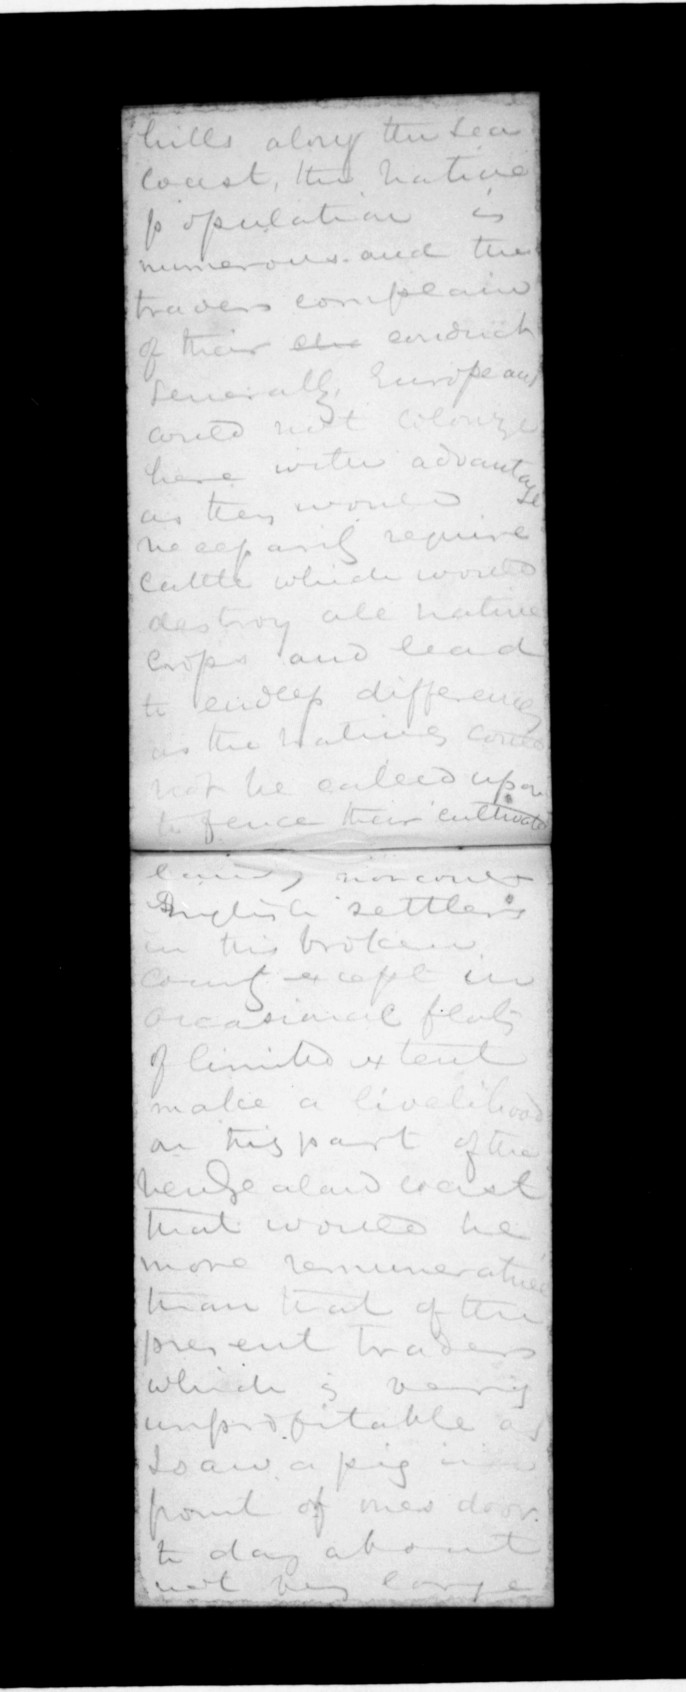 hills along the Sea
Coast, the native
population is
numerous and the
traders complain
of their conduct
generally, Europeans
could not colonize
here with advantage
as they would
necessarily require
cattle which would
destroy all native
crops and lead
to endless differences
as the natives could
not be called upon
to fence their cultivated
land, nor could
English settlers
in this broken
county except in
occasional flats
of limited extent
make a livelihood
on this part of the
New Zealand coast
that would be
more remunerative
than that of the
present traders
which is very
unprofitable as
I saw a pig in
front of ones door
to day about
not very large